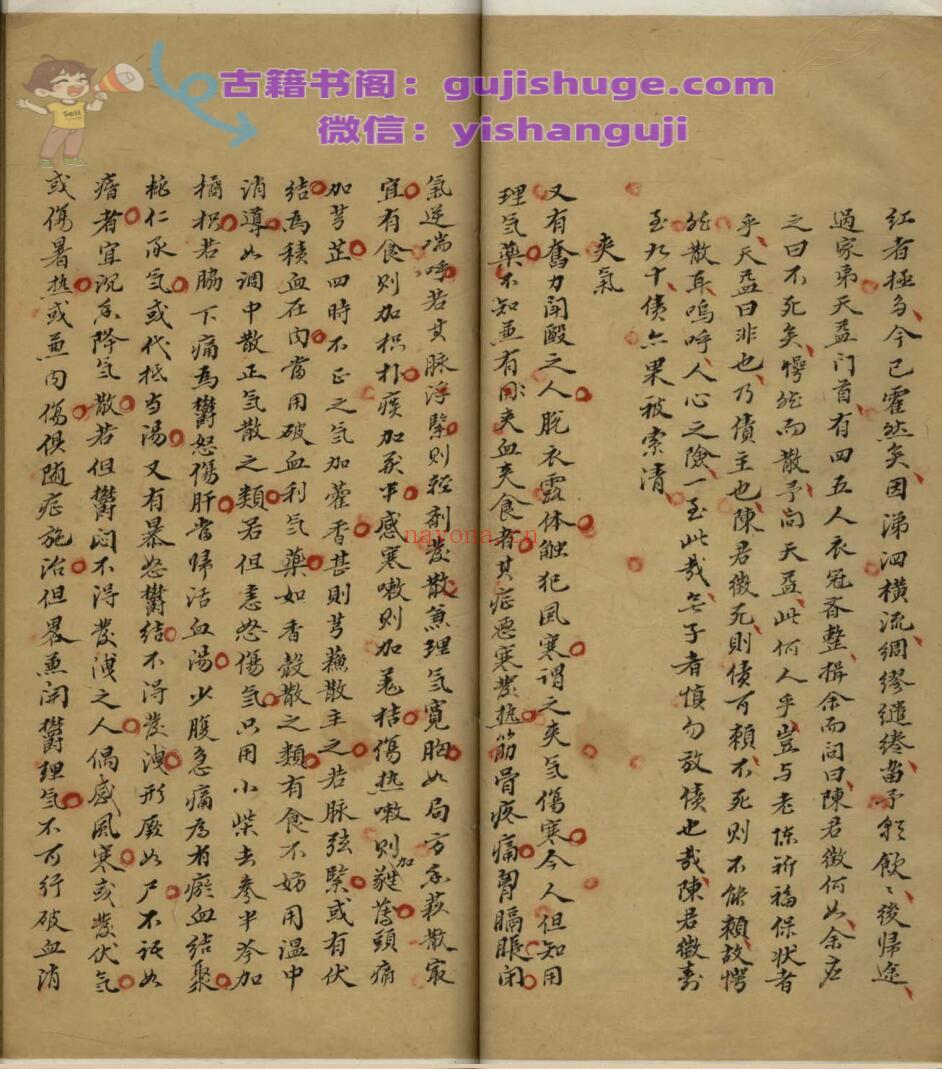 古籍书阁：gujishuge.com
微信：yishanguji
Sell
nayona.cn
红者極多今已霍然矣因涕泗横流綢繆繾綣畱予飲、後归途
過家弟天益门首有四五人衣冠齊整揖余而问曰陳君徵何如余应
之曰不死矣愕然而散予问天益此何人乎豈与老陈祈福保状者
乎天益曰非也乃债主也陳君徵死则债可頼不死则不能頼故愕
然散耳嗚呼人心之險一至此哉無子者慎勿放债也哉陳君徵壽
至九十债亦果被索清
夾氣
又有奮力闘毆之人脱衣露体触犯風寒谓之夾气傷寒今人但知用
理气藥不知兼有夾血夾食者其症惡寒發热筋骨疼痛胃膈脹闭
氣逆喘呼若其脉浮緊则轻剤發散兼理气寛胸如局方香蘇散最
宜有食则加枳朴痰加苓半感寒嗽则加羌桔傷热嗽则加薄頭痛
加芎芷四時不正之气加藿香甚則芎蘇散主之若脉弦緊或有伏
结為積血在内當用破血利气藥如香殻散之類有食不妨用温中
消導如调中散正气散之類若但恚怒傷气只用小柴去参半苓加
橘枳若脇下痛為欝怒傷肝當归活血湯少腹急痛為有瘀血结聚
桃仁承气或代抵当湯又有暴怒欝结不淂發洩形厥如尸不语如
瘖者宜沉香降气散若但欝闷不淂發洩之人偶感風寒或發伏气
或傷暑热或兼内傷俱随症施治但畧兼闲欝理气不可行破血消